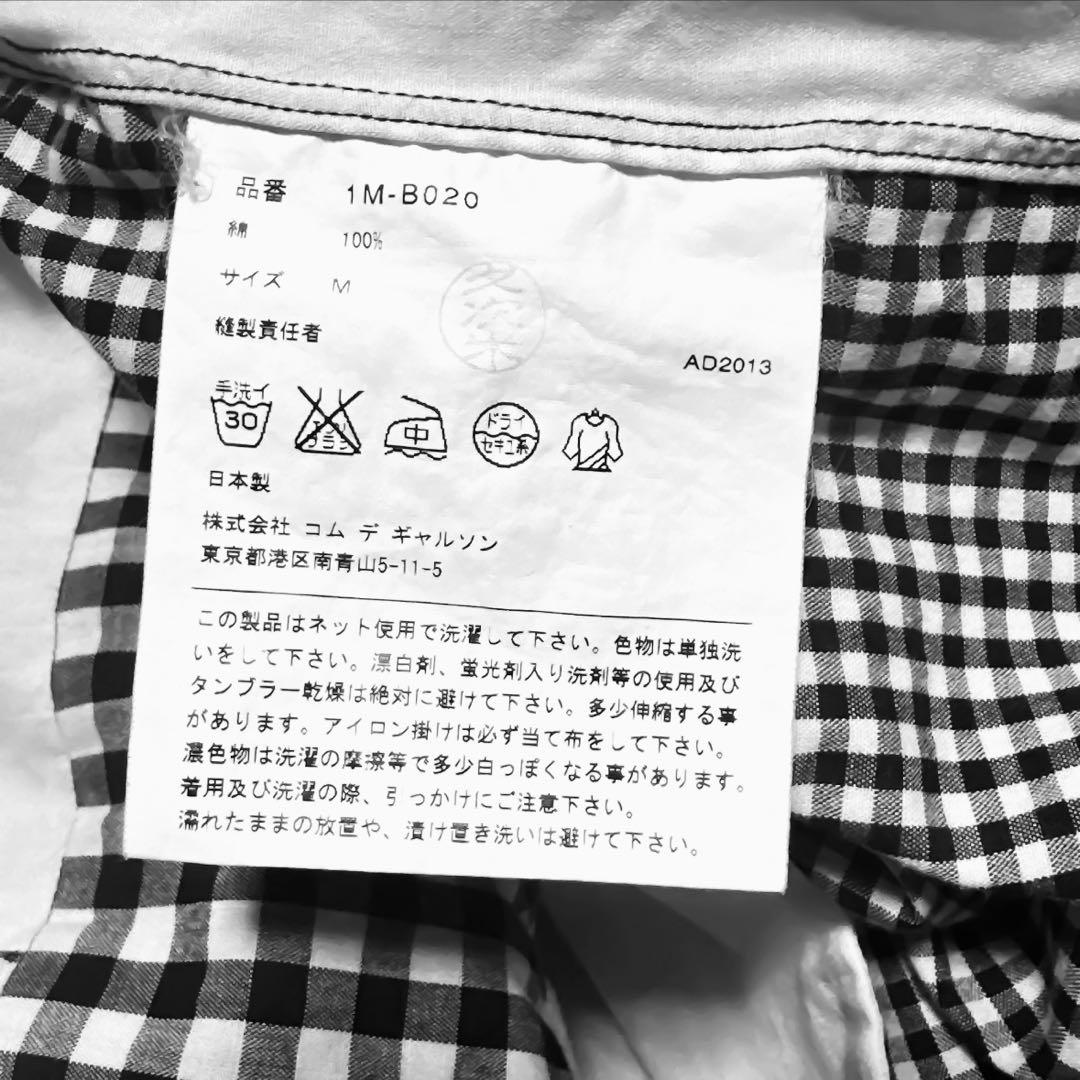 品番 1M-B020
綿 100%
サイズ M
縫製責任者
AD2013
手洗イ
30
中
ドライ
セキユ系
日本製
株式会社 コム デ ギャルソン
東京都港区南青山5-11-5
この製品はネット使用で洗濯して下さい。色物は単独洗
いをして下さい。漂白剤、蛍光剤入り洗剤等の使用及び
タンブラー乾燥は絶対に避けて下さい。多少伸縮する事
があります。アイロン掛けは必ず当て布をして下さい。
濃色物は洗濯の摩擦等で多少白っぽくなる事があります。
着用及び洗濯の際、引っかけにご注意下さい。
濡れたままの放置や、漬け置き洗いは避けて下さい。